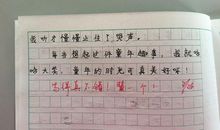 我听了慢慢止住了哭声。
每当想起这件童年趣事，我就哈
哈大笑，童年的时光可真是好呀！
真不错！赞一个！